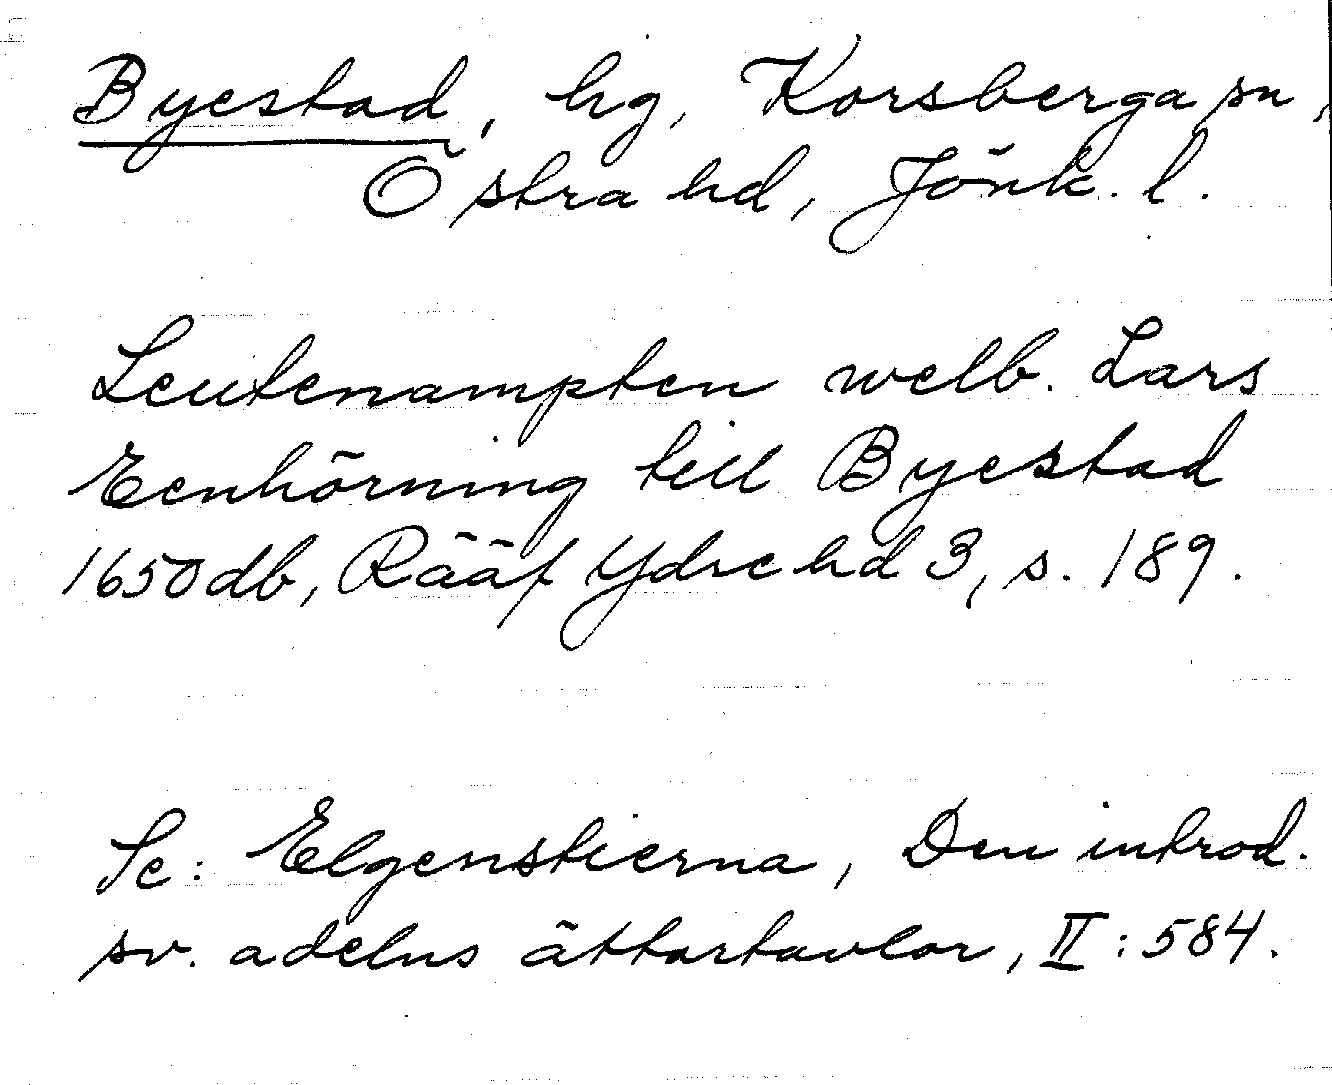 Byestad, hg, Korsberga sn,
Östra hd, Jönk. l.
Leutenampten welb. Lars
Eenhörning till Byestad
1650 db, Rääf Ydre hd 3, s. 189.
Se: Elgenstierna, Den introd.
sv. adelns ättartavlor, II:584.